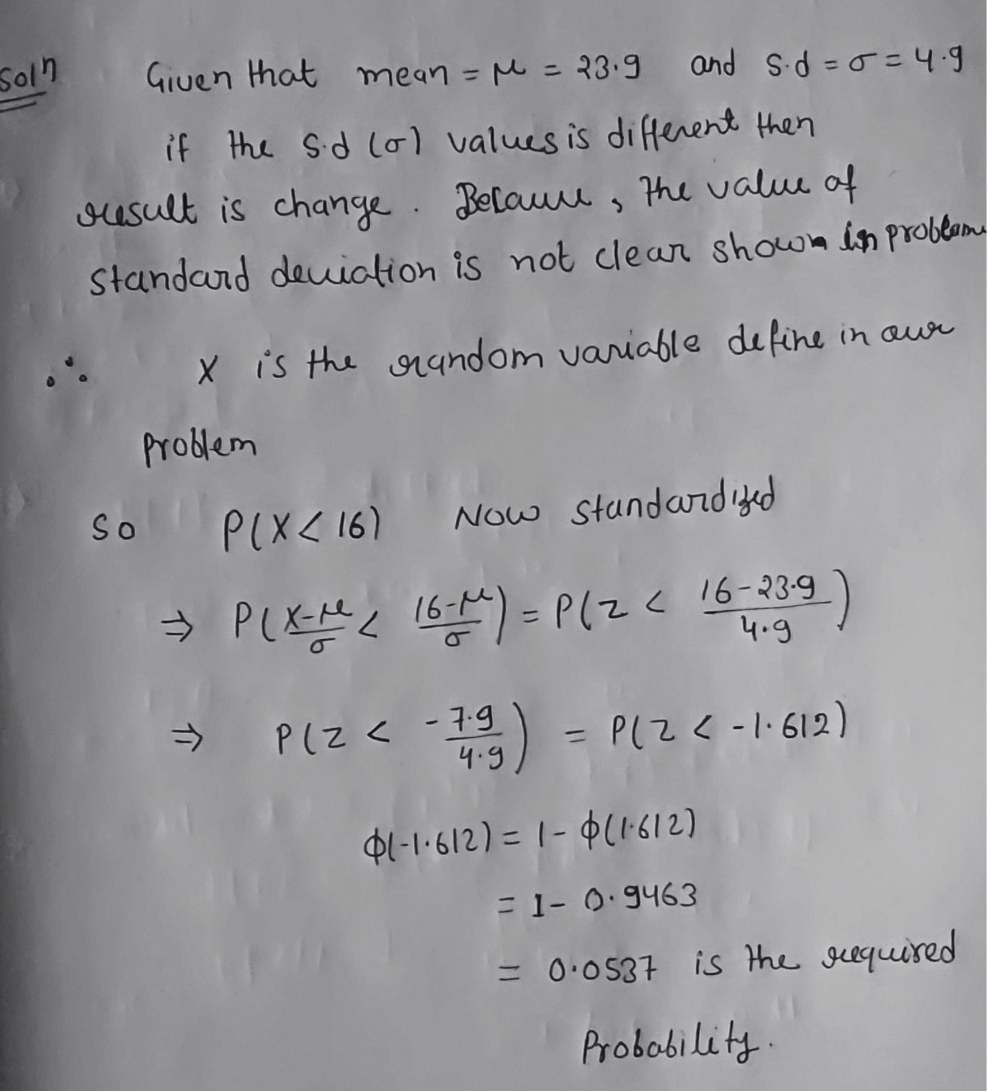 Soln Given that mean = μ = 23.9 and s.d = σ = 4.9
if the s.d (σ) values is different then
result is change. Because, the value of
standard deviation is not clear shown in problem
∴ X is the random variable define in our
problem
So P(X < 16) Now standardized
⇒ P(X-μ/σ < 16-μ/σ) = P(Z < 16-23.9/4.9)
⇒ P(Z < -7.9/4.9) = P(Z < -1.612)
ϕ(-1.612) = 1 - ϕ(1.612)
= 1 - 0.9463
= 0.0537 is the required
Probability.